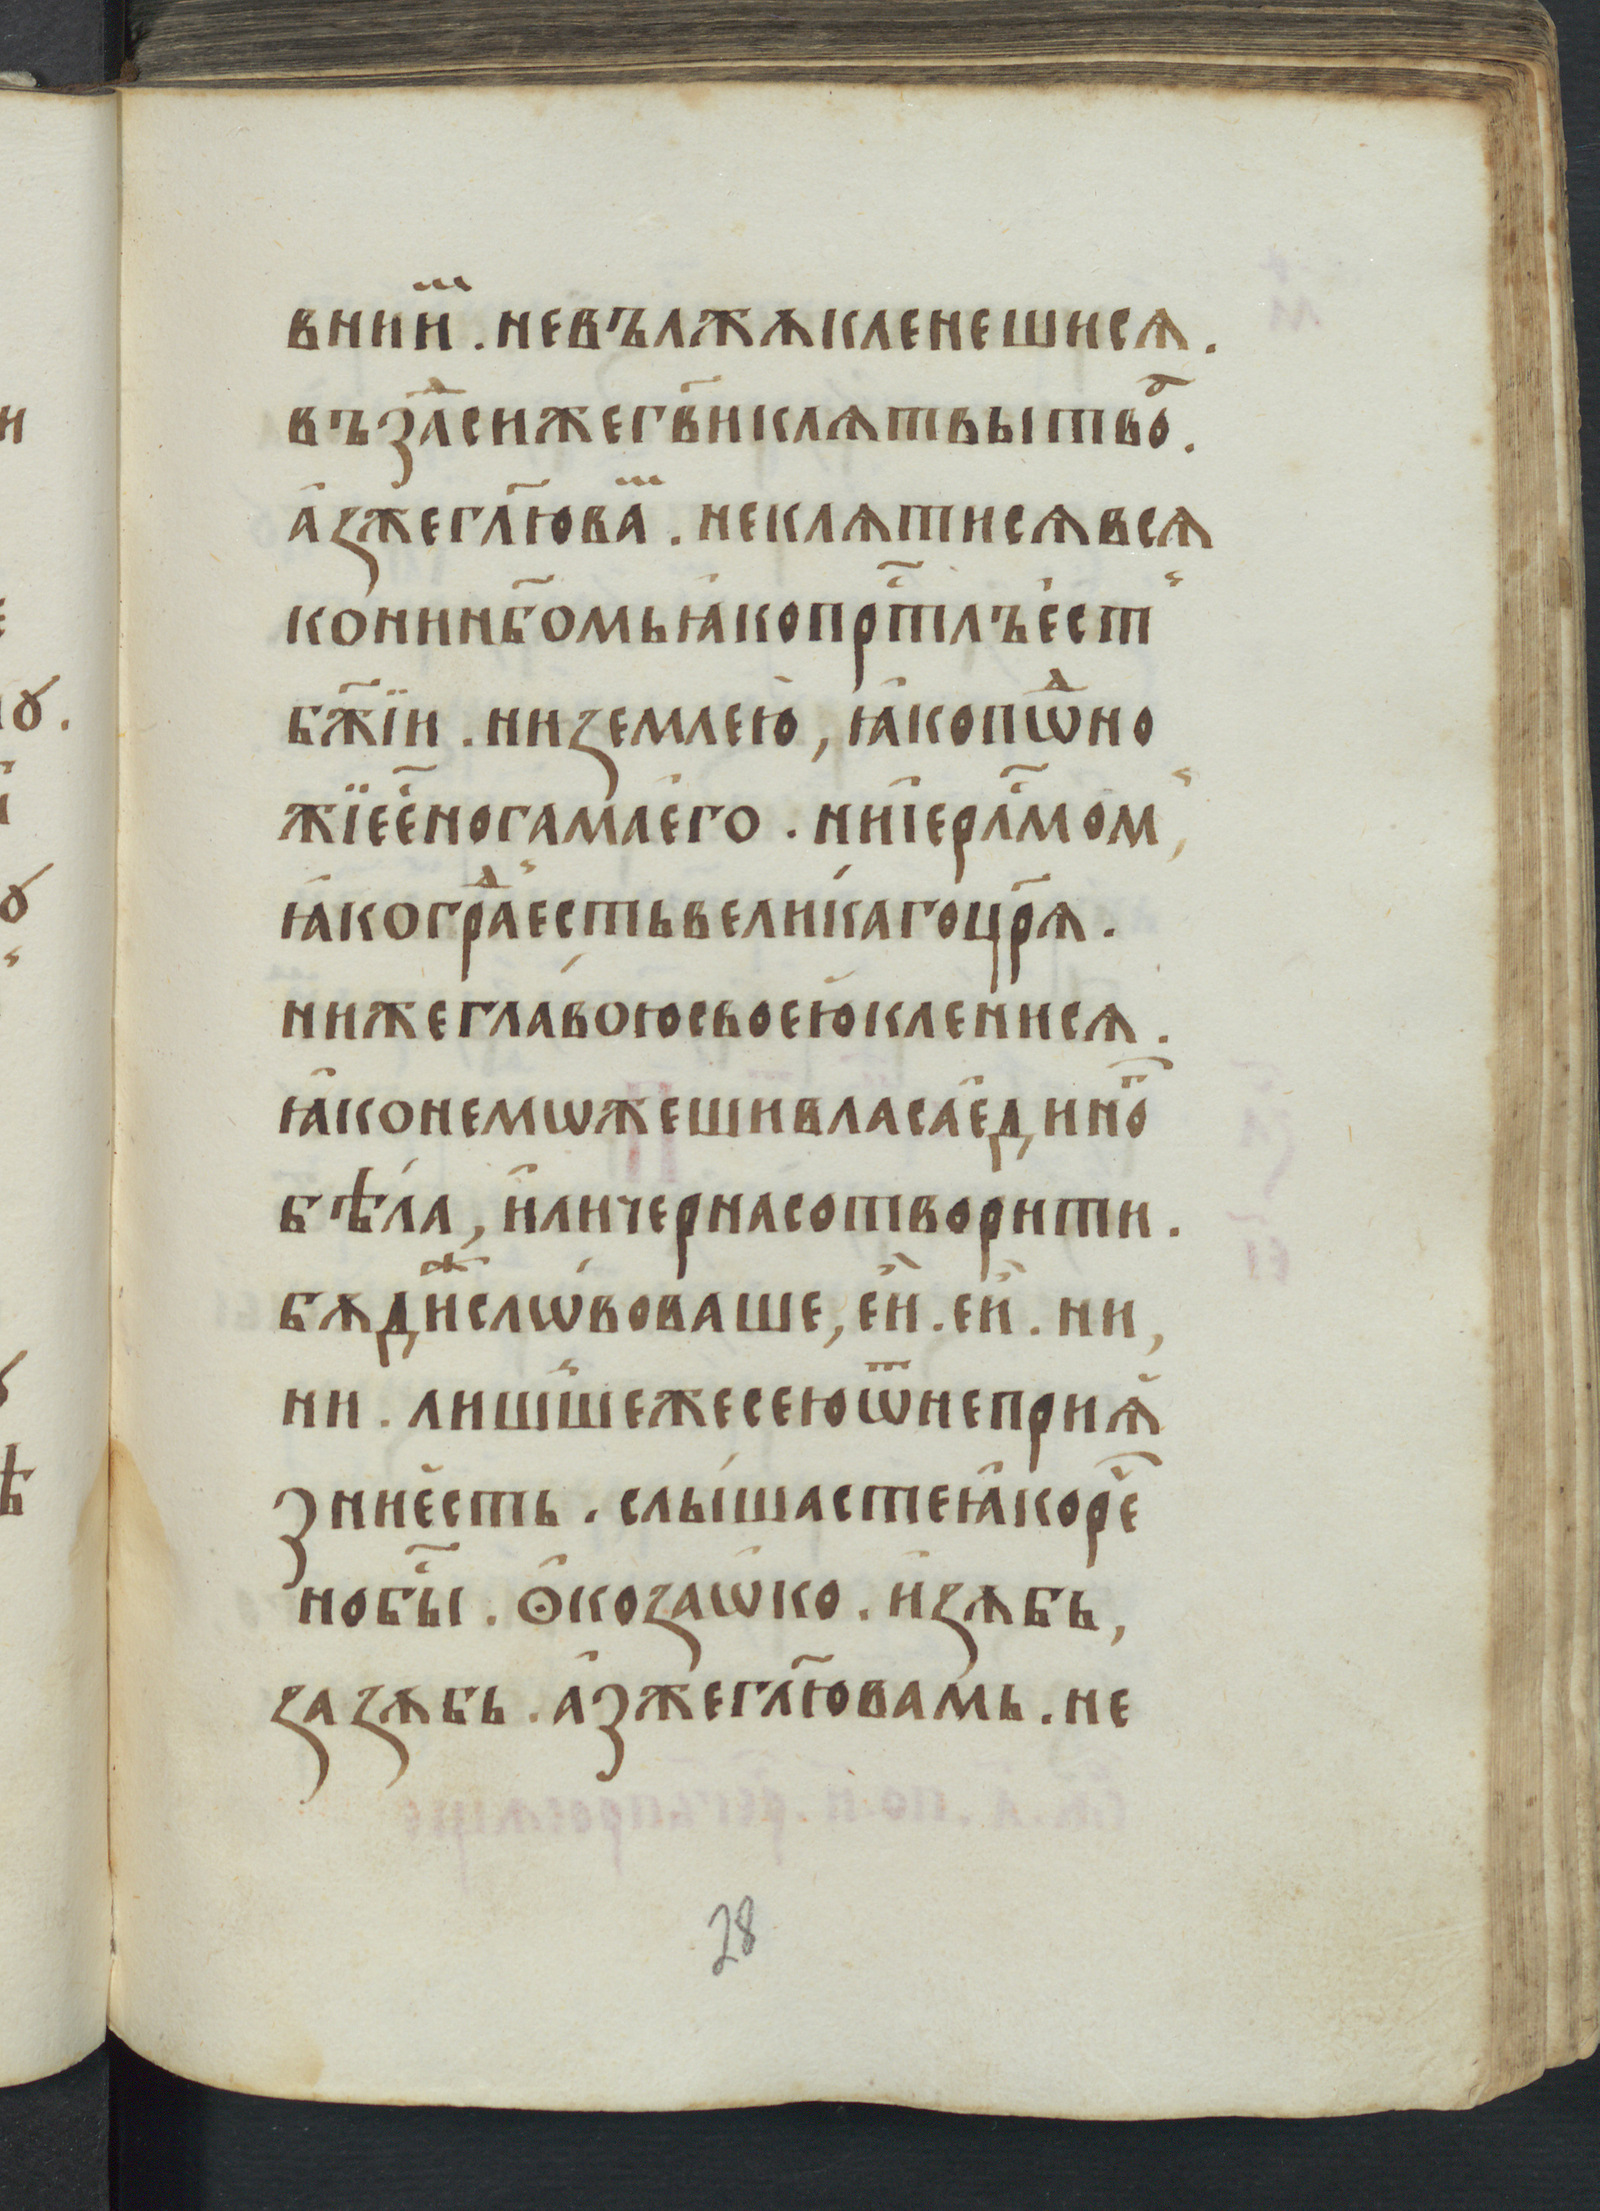 вниⷨи҆ . невължѫкленешисѧ .
възⷣасижегв҃иклѧтвытвоⷪ҇ .
а҆зжегл҃ювⷨа . неклѧтисѧвсѧ
конинб҃омьꙗ҆копрⷭ҇тлъе҆ст
бж҃їи . низемлею̀ , ꙗ҆копѿⷣно
жїее҆ⷭ҇ногамае҆го . нии҆ерⷭ҇лмом ,
ꙗ҆когрⷣаестьвели́кагоцр҃ѧ .
нижегла́воюсвоею҆кленисѧ .
ꙗ҆конемѡжешивласае҆динⷢ҇о
бѣ́ла , и҆личернасотворити .
бѫдⷤислѡ́воваше , е҆и . еи҆ . ни ,
ни . лишшежесеюѿнеприꙗ҆
зние҆сть . слы́шастеꙗ҆корⷱ҇е
нобⷭ҇ы . ѻ҆козаѡ҆ко . и҆зѫбь ,
зазѫбь . а҆зжегл҃ювамь . не
28